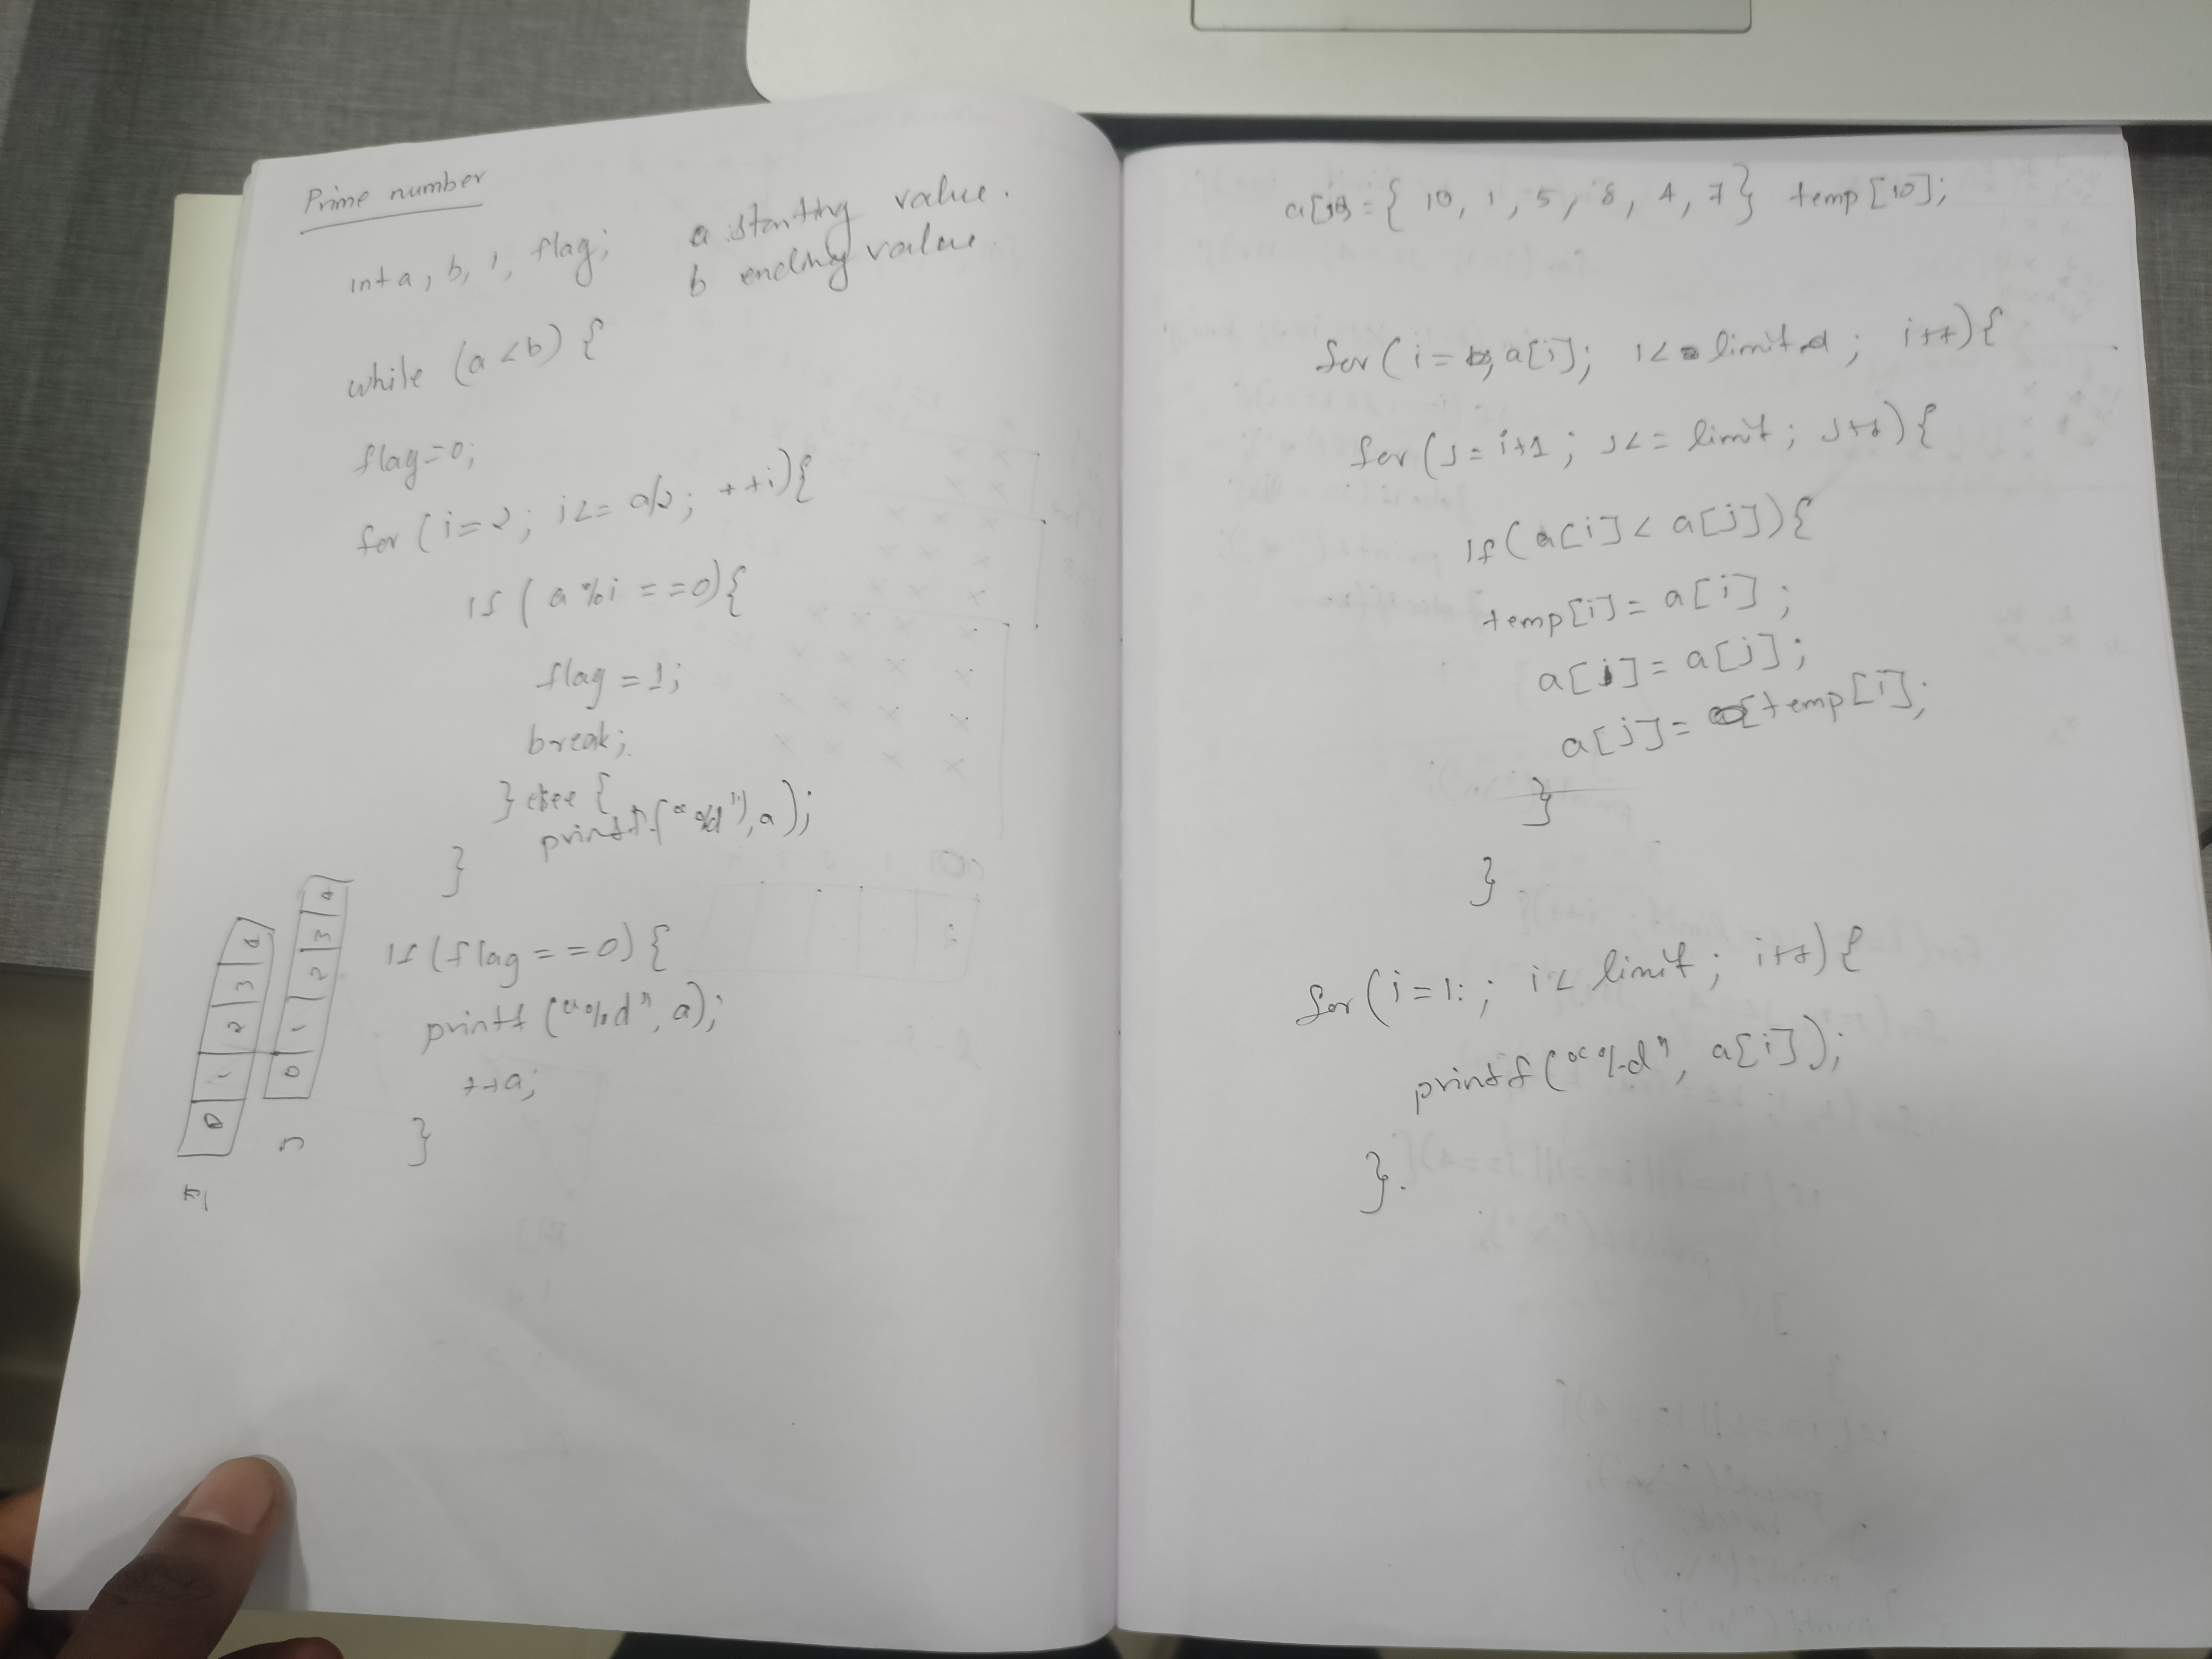 Prime number
int a, b, i, flag; a starting value.
b ending value.
while (a < b) {
flag=0;
for (i=2; i<= a/2; ++i){
if ( a %i ==0){
flag = 1;
break;
} else {
printf("%d"), a);
}
if (flag ==0) {
printf ("%d", a);
++a;
}
0 1 2 3 4
0 1 2 3 4
a[10]= { 10, 1, 5, 8, 4, 7} temp [10];
for ( i = a[i]; i< limit ; i++){
for (j= i+1 ; j<= limit ; j++){
if (a[i] < a[j]){
temp[i] = a[i] ;
a[i] = a[j] ;
a[j] = temp[i];
}
}
for (i=1: ; i< limit ; i++) {
printf ("%d", a[i]);
}.